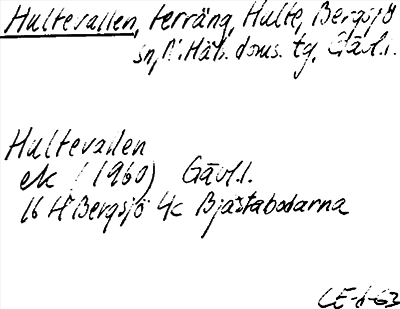 Hultevallen, terräng, Hulte, Bergsjö
sn, N. Häls. doms. tg, Gävl.l.
Hultevallen
ek (1960) Gävl.l.
16 H Bergsjö 4c Bjästabodarna
CE-1-63